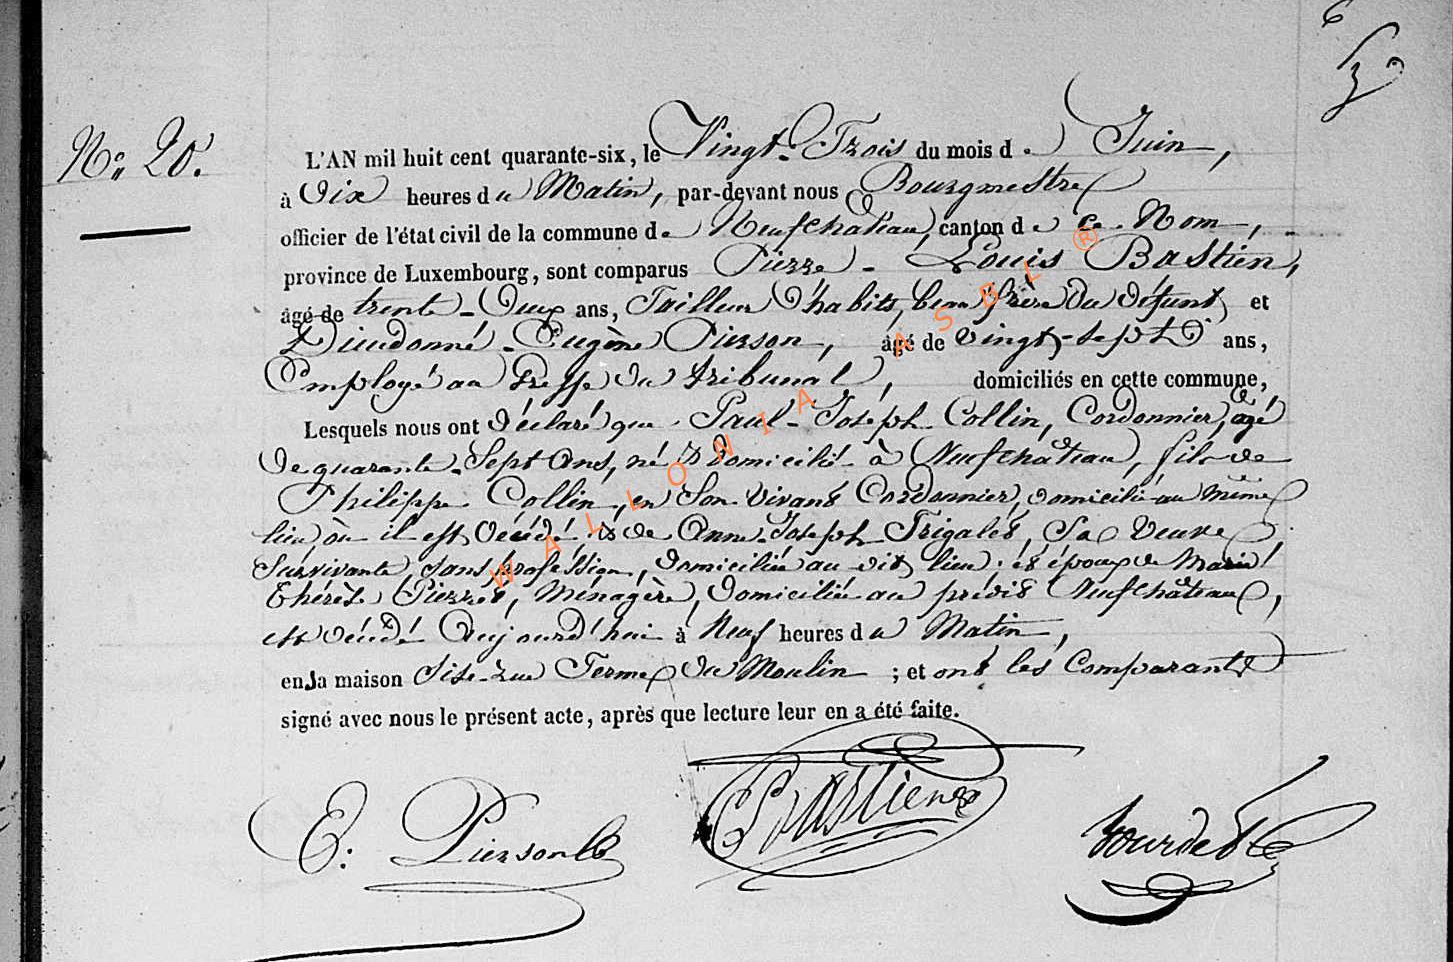 6
Nº 20.
L'AN mil huit cent quarante-six, le Vingt-Trois du mois de Juin,
à Dix heures du Matin, par-devant nous Bourgmestre
officier de l'état civil de la commune de Neufchateau, canton de ce Nom,
province de Luxembourg, sont comparus Pierre-Louis Bastien,
âgé de trente-Deux ans, Tailleur D'habits, beau frère Du défunt, et
Dieudonné-Eugène Pierson, âgé de vingt-sept ans,
Employé au Greffe du tribunal, domiciliés en cette commune,
Lesquels nous ont déclaré que Paul-Joseph Collin, Cordonnier, âgé
de quarante-Sept Ans, né & Domicilié à Neufchâteau, fils de
Philippe Collin, en Son Vivant Cordonnier, domicilié au même
lieu où il est décédé & de Anne-Joseph Trigalet, Sa Veuve
Survivante, sans profession, domiciliée au dit lieu et époux de Marie
Thérèse Pierret, Ménagère, Domiciliée au prédit Neufchâteau,
est décédé Aujourd'hui à Neuf heures du Matin,
en sa maison Sise rue Terme du Moulin ; et ont les Comparants
signé avec nous le présent acte, après que lecture leur en a été faite.
E: Pierson Bastien Bourdet
WALLONIA ASBL ®